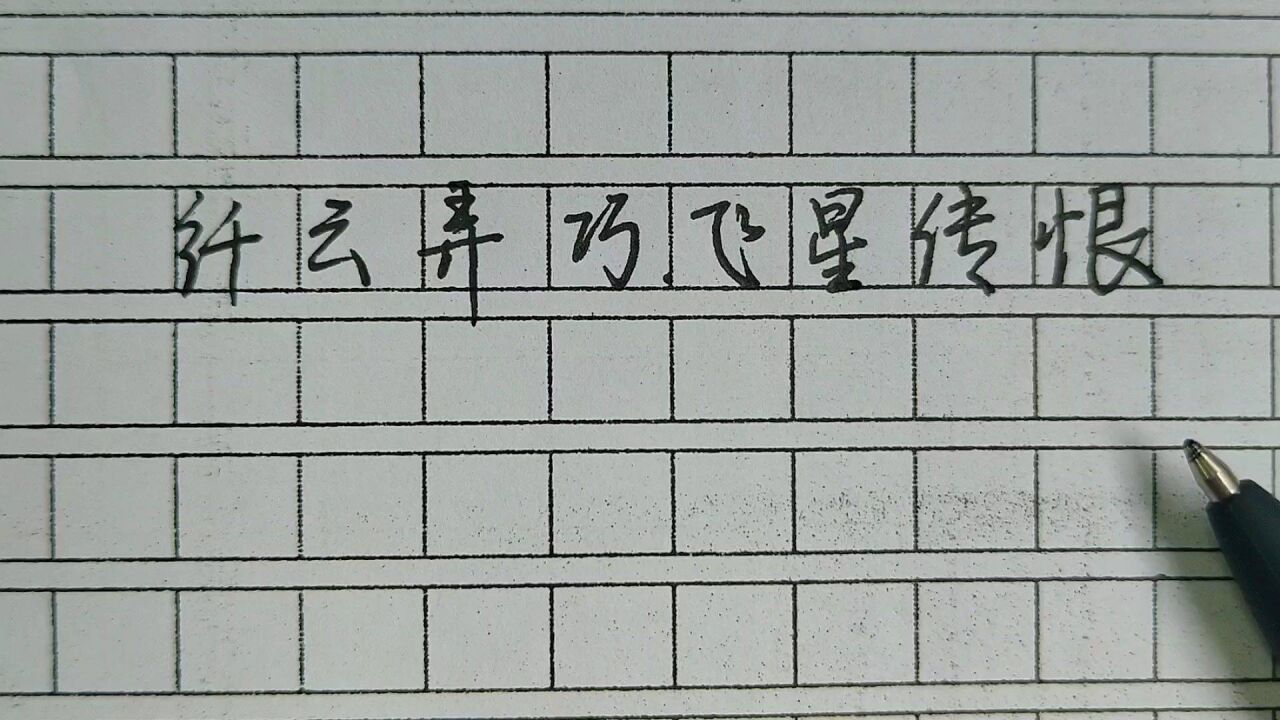 纤云弄巧.飞星传恨